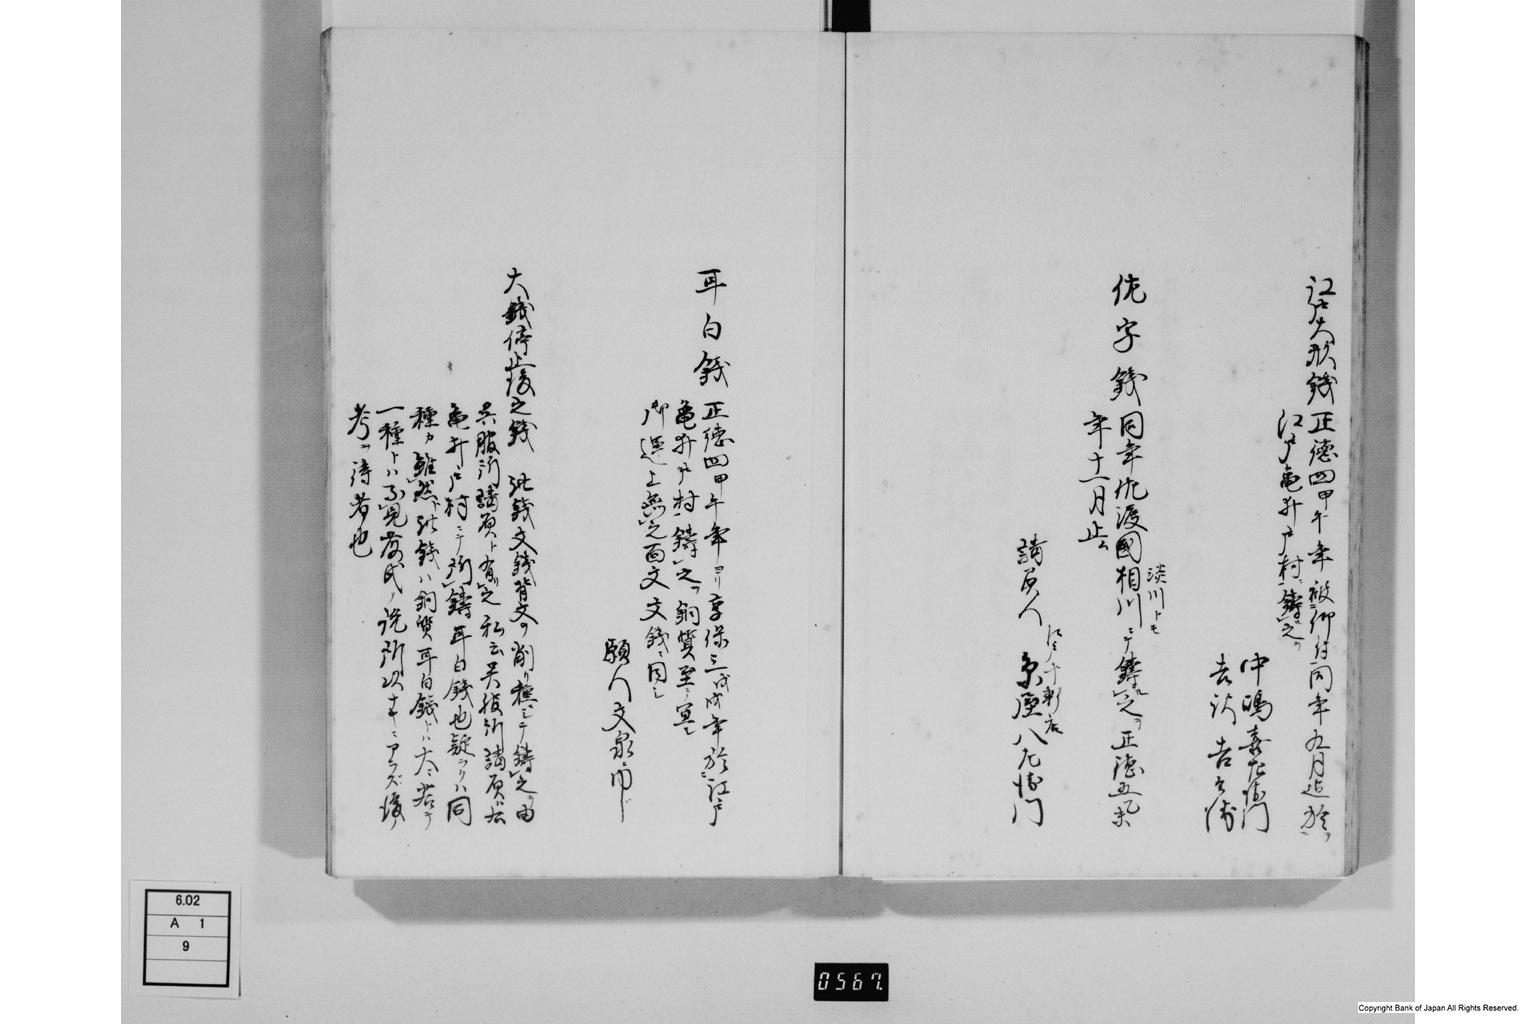 江戸大形錢 正德四甲午年被仰付同年九月迠於
江戸亀井戸村鋳之
中嶋喜左衛門
吉沢吉兵衛
佐字錢 同年佐渡國相川ニテ鋳之 正德五乙未
淡川トモ
年十一月止ム
請負人 江戸十軒店 糸屋八左衛門
耳白錢 正德四甲午年ヨリ享保三戊戌年於江戸
亀井戸村鋳之 銅質至テ冥シ
御運上無之面文文錢ニ同シ
願人 文泉
大錢停止後之錢 此錢文錢背文ヲ削リ種ニシテ鋳之由
呉服所請負ト有之 私云呉服所請負
亀井戸村ニテ所鋳耳白錢也疑ラクハ同
種カ雖然此錢ハ銅質耳白錢トハ大ニ若テ
一種トハ不見 氏ノ説 アラズ後ノ
考ヲ待者也
6.02
A 1
9
0567.
Copyright Bank of Japan All Rights Reserved.